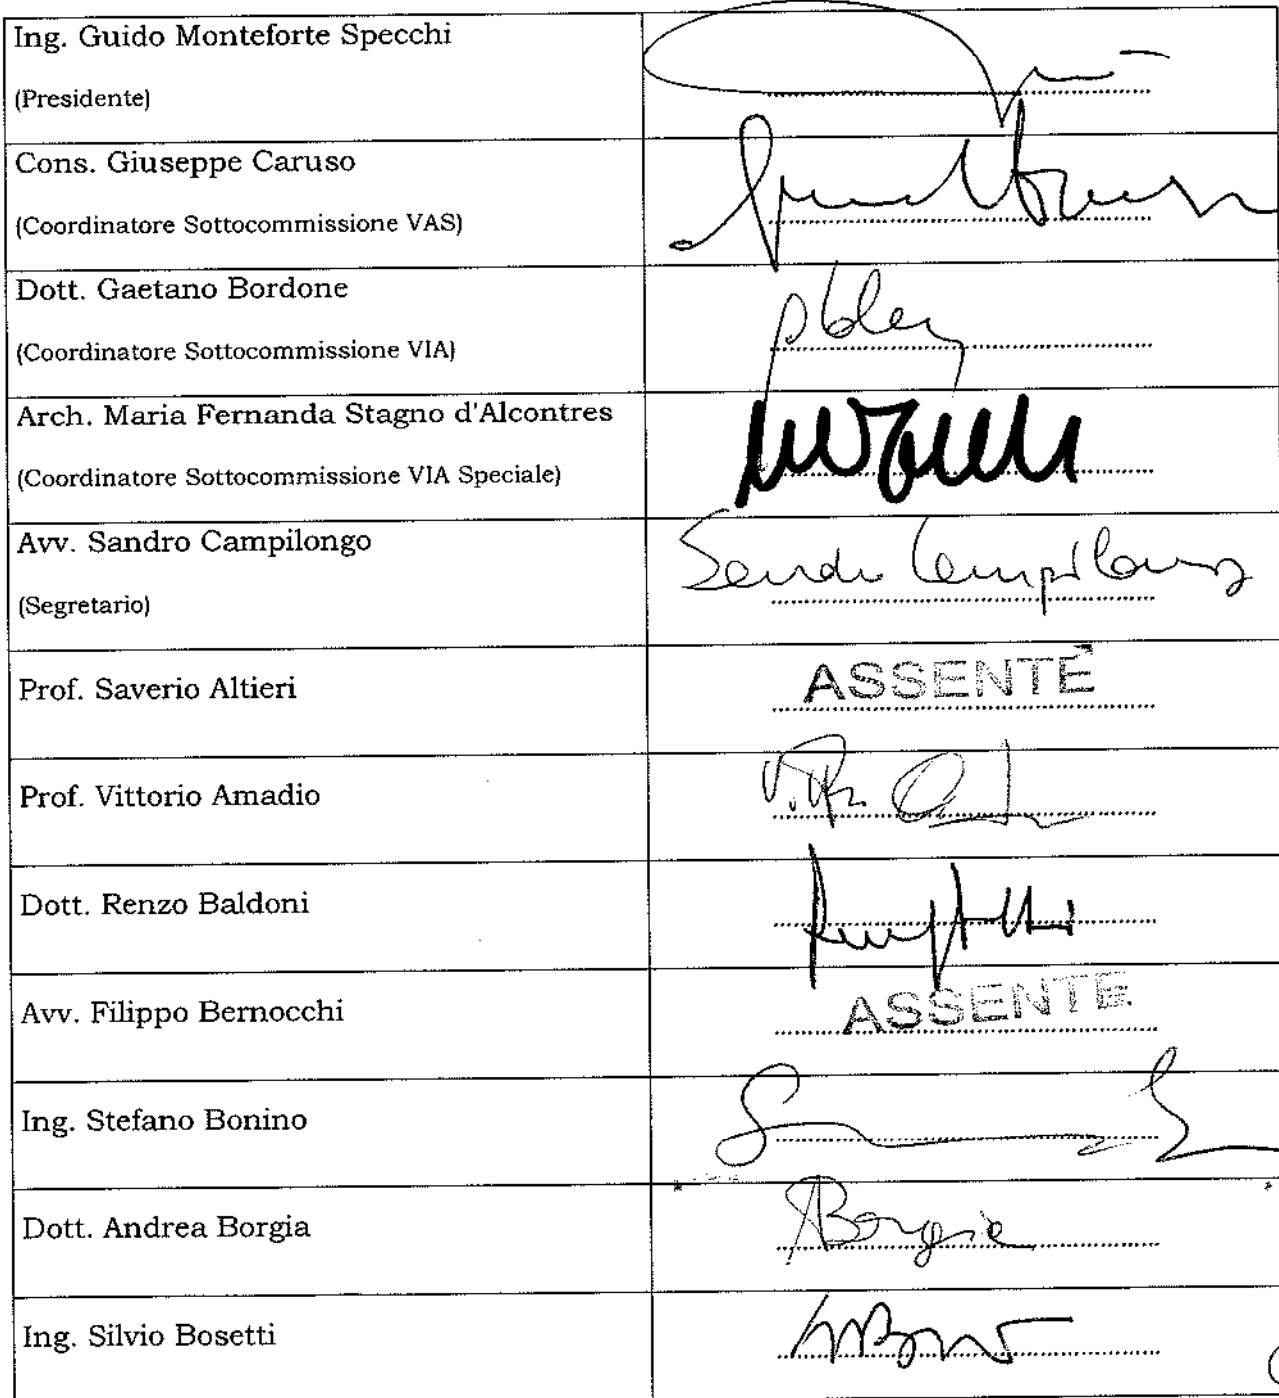 Ing. Guido Monteforte Specchi
(Presidente)
Cons. Giuseppe Caruso
(Coordinatore Sottocommissione VAS)
Dott. Gaetano Bordone
(Coordinatore Sottocommissione VIA)
Arch. Maria Fernanda Stagno d'Alcontres
(Coordinatore Sottocommissione VIA Speciale)
Avv. Sandro Campilongo
Sandro Campilongo
(Segretario)
Prof. Saverio Altieri
ASSENTE
Prof. Vittorio Amadio
Dott. Renzo Baldoni
Avv. Filippo Bernocchi
ASSENTE
Ing. Stefano Bonino
Dott. Andrea Borgia
ABorgia
Ing. Silvio Bosetti